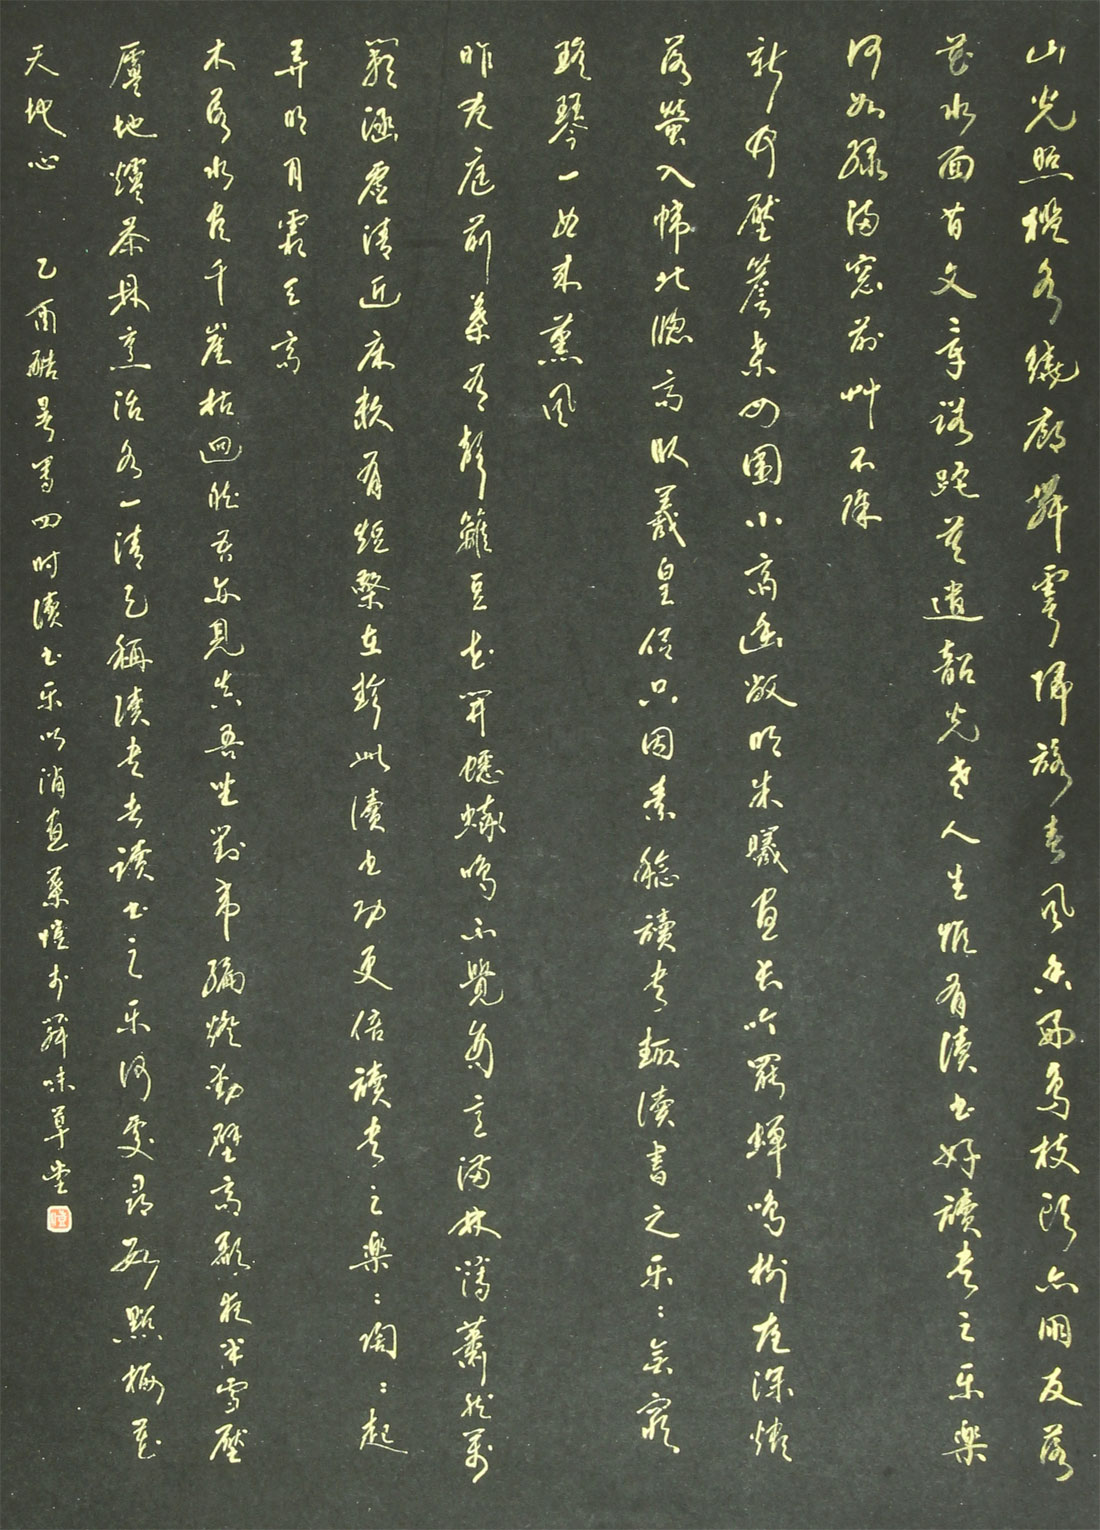 山光照槛水繞廊舞雩歸詠春风香好鸟枝头亦朋友落
花水面皆文章蹉跎莫遣韶光老人生惟有读书好读书之乐樂
何如绿满窗前艸不除
新竹壓簷桑四围小斋幽敞明朱曦昼长吟罢蝉鸣树夜深烬
落萤入帏北窗高臥羲皇侣只因素稔读书趣读書之乐：無窮
瑶琴一曲来薰风
昨夜庭前葉有声篱豆花开蟋蟀鸣不覺商意满林薄蕭然万
籁涵虚清近床赖有短檠在趁此读书功更倍读书之樂：陶：起
弄明月霜天高
木落水尽千崖枯迥然吾亦見真吾坐對韦编燈动壁高歌夜半雪壓
廬地爐茶鼎烹活水一清足稱读书者读书之乐何處尋数點梅花
天地心 乙酉酷暑写四时读书乐以消夏葉愷於辨味草堂